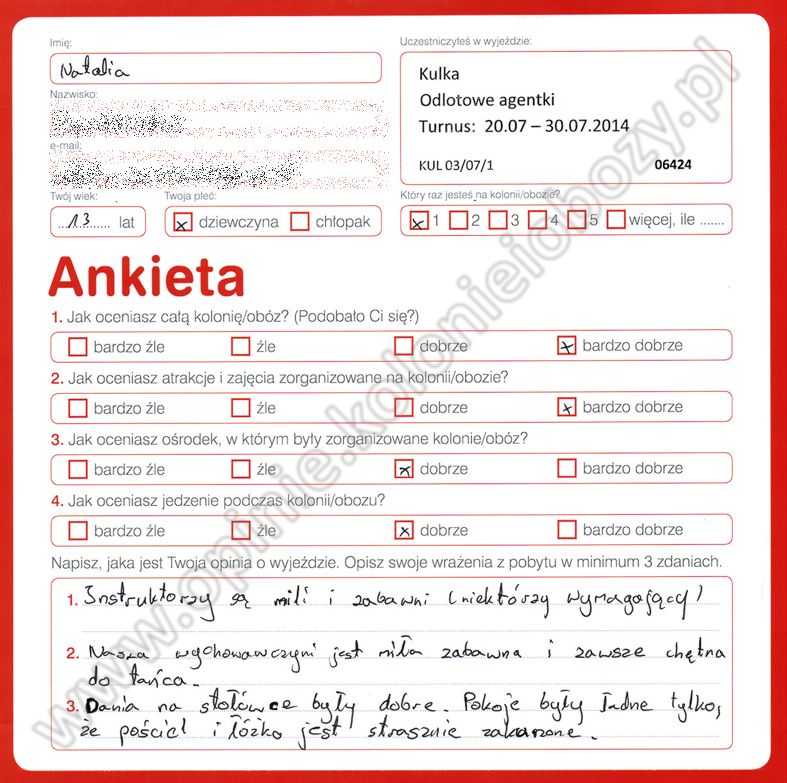 Imię:
Natalia
Nazwisko:
e-mail:
Twój wiek:
13 lat
Twoja płeć:
dziewczyna chłopak
Uczestniczyłeś w wyjeździe:
Kulka
Odlotowe agentki
Turnus: 20.07 – 30.07.2014
KUL 03/07/1 06424
Który raz jesteś na kolonii/obozie?
1 2 3 4 5 więcej, ile .......
Ankieta
1. Jak oceniasz całą kolonię/obóz? (Podobało Ci się?)
bardzo źle źle dobrze bardzo dobrze
2. Jak oceniasz atrakcje i zajęcia zorganizowane na kolonii/obozie?
bardzo źle źle dobrze bardzo dobrze
3. Jak oceniasz ośrodek, w którym były zorganizowane kolonie/obóz?
bardzo źle źle dobrze bardzo dobrze
4. Jak oceniasz jedzenie podczas kolonii/obozu?
bardzo źle źle dobrze bardzo dobrze
Napisz, jaka jest Twoja opinia o wyjeździe. Opisz swoje wrażenia z pobytu w minimum 3 zdaniach.
1. Instruktorzy są mili i zabawni (niektórzy wymagający)
2. Nasza wychowawczyni jest miła zabawna i zawsze chętna
do tańca.
3. Dania na stołówce były dobre. Pokoje były ładne tylko,
że pościel i łóżko jest strasznie zakurzone.
www.opinie.kolonieiobozy.pl